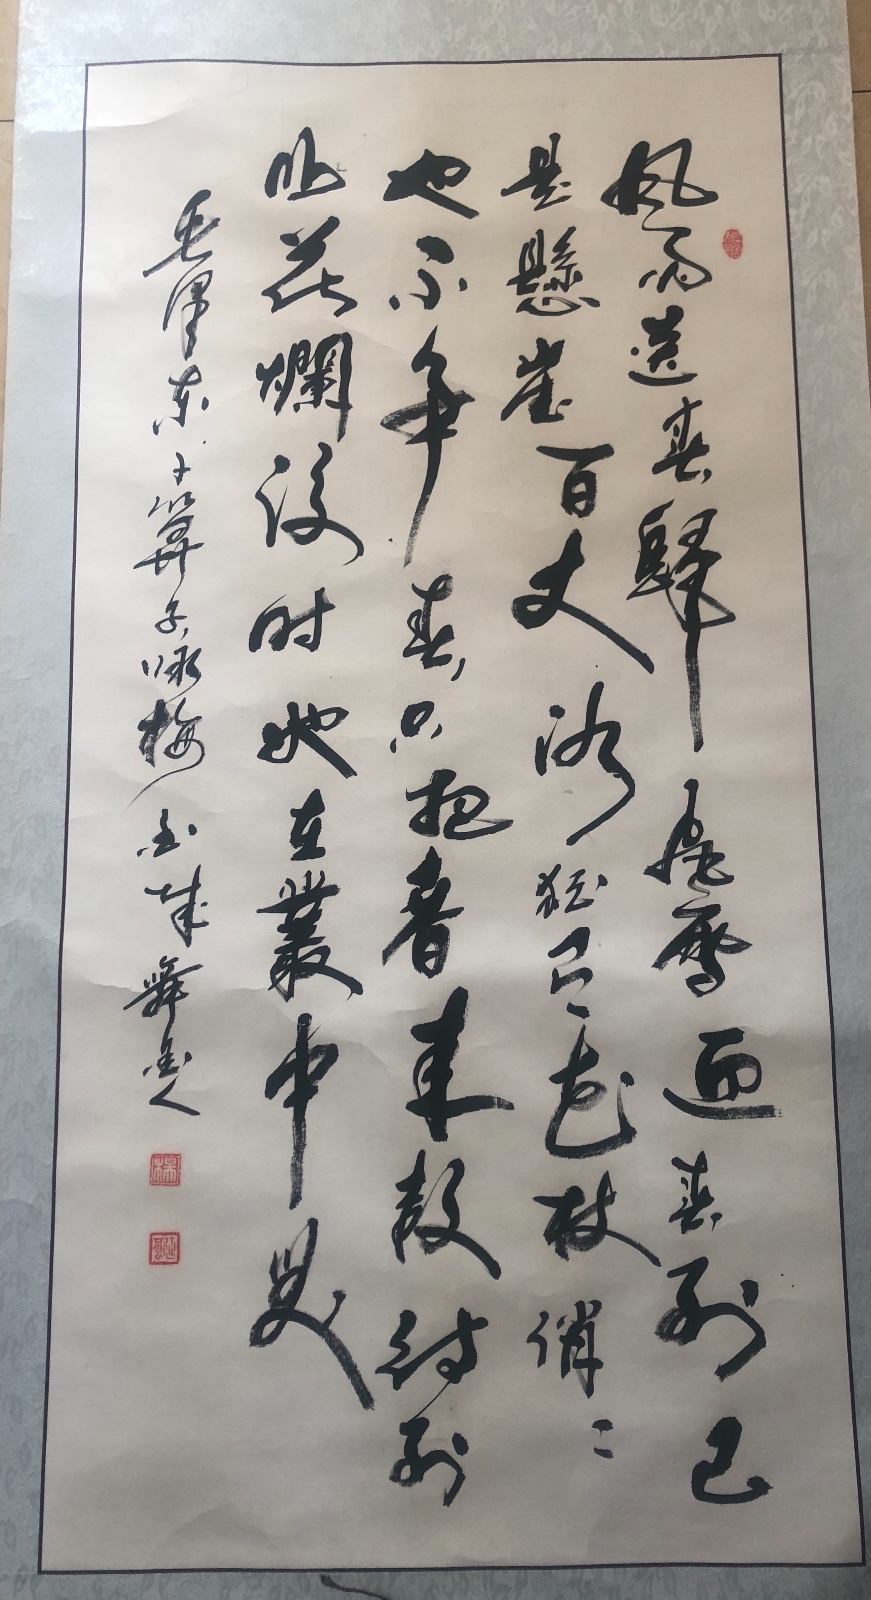 风雨送春歸飛雪迎春到已
是懸崖百丈冰猶有花枝俏〻
也不争春只把春来報待到
山花爛漫时她在叢中笑
毛澤东卜算子咏梅